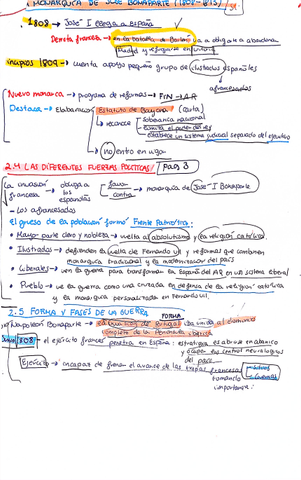 MONARQUÍA DE JOSÉ BONAPARTE (1808-1813)
1808 → José I llega a España
Derrota francesa → en la batalla de Bailén va a obligarle a abandonar
Madrid y refugiarse en
1809 → cuenta apoyo pequeño grupo de ilustrados españoles
afrancesados
Nuevo monarca → programa de reformas → FIN → A.R
Destaca → Elaboración Estatuto de Bayona (Carta)
→ reconoce soberanía nacional
Establece un sistema judicial separado del ejecutivo
→ no entró en vigor
2.4 LAS DIFERENTES FUERZAS POLÍTICAS Pág 3
La invasión francesa → obliga a los españoles → favor / contra → monarquía de José I Bonaparte
- Los afrancesados
El grueso de la población formó Frente Patriótico:
• Mayor parte clero y nobleza → vuelta al absolutismo y la religión católica
• Ilustrados → defienden la vuelta de Fernando VII y reformas que combinen
monarquía tradicional y la modernización del país
• Liberales → ven la guerra para transformar la España del AR en un sistema liberal
• Pueblo → ve la guerra como una cruzada en defensa de la religión católica
y la monarquía personalizada en Fernando VII.
2.5 FORMA Y FASES DE UNA GUERRA
FORMA
Napoleón Bonaparte → la de Portugal iba unida al dominio
completo de la Península ibérica
1808 → el ejército francés penetra en España: estrategia es abrirse en abanico
y ocupar los centros neurálgicos
del país
Ejército → incapaz de frenar el avance de las tropas francesas
tomando
importante: